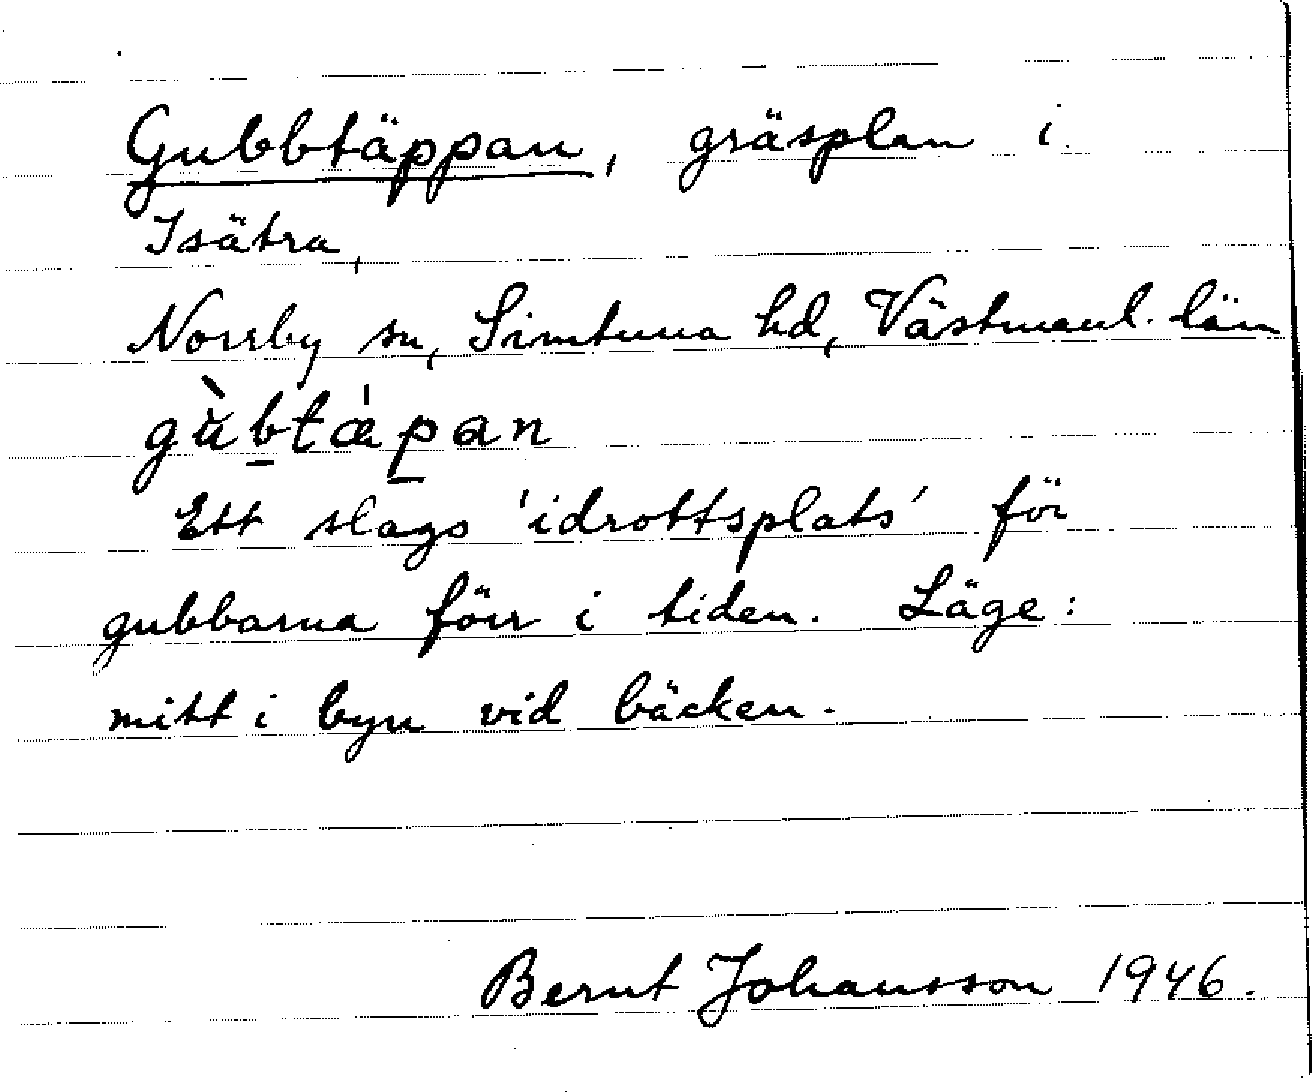 Gubbtäppan, gräsplan i
Isätra,
Norrby sn, Simtuna hd, Västmanl. län
gu̇̀b̲tæ̀p̲an
Ett slags 'idrottsplats' för
gubbarna förr i tiden. Läge:
mitt i byn vid bäcken.
Bernt Johansson 1946.